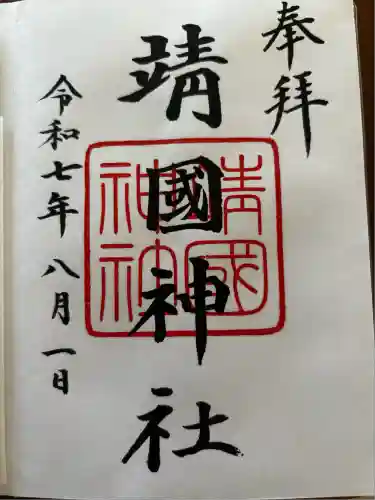 奉拝
靖國神社
靖國神社
令和七年八月一日